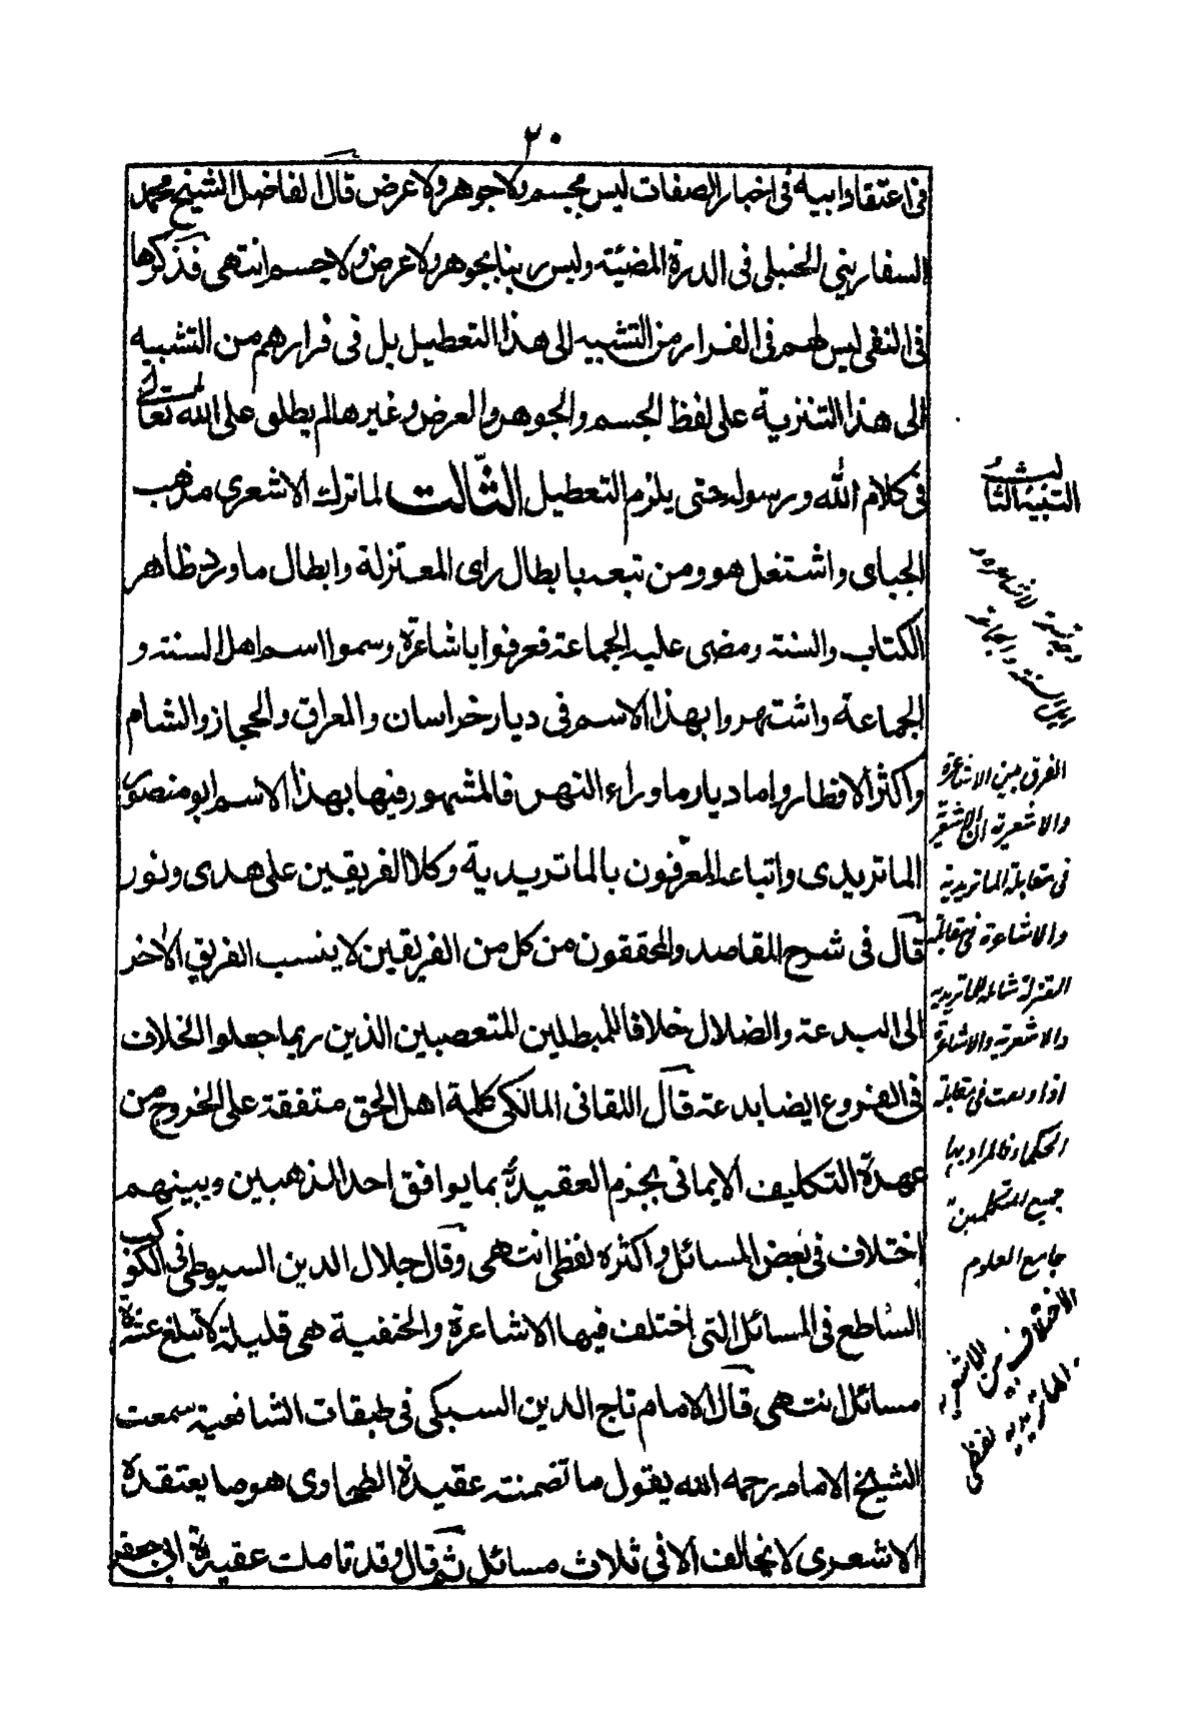 ٢٠
في اعتقاد ابيه في اخبار الصفات ليس بجسم ولا جوهر ولا عرض قال الفاضل الشيخ محمد
السفاريني الحنبلي في الدرة المضيئة وليس ربنا بجوهر ولا عرض ولا جسم انتهى فذكرها
في النفي ليس لهم في الفرار من التشبيه الى هذا التعطيل بل في فرارهم من التشبيه
الى هذا التنزية على لفظ الجسم والجوهر والعرض وغيرها لم يطلق على الله تعالى
في كلام الله ورسوله حتى يلزم التعطيل الثالث لما ترك الاشعري مذهب
الجباى واشتغل هو ومن تبعه بابطال راى المعتزلة وابطال ما ورد ظاهر
الكتاب والسنة ومضى عليه الجماعة فعرفوا باشاعرة وسموا اسم اهل السنة و
الجماعة واشتهروا بهذا الاسم في ديار خراسان والعراق والحجاز والشام
واكثر الاقطار واما ديار ما وراء النهر فالمشهور فيها بهذا الاسم ابو منصور
الماتريدى واتباعه المعرفون بالماتريدية وكلا الفريقين على هدى ونور
قال في شرح المقاصد والمحققون من كل من الفريقين لا ينسب الفريق الاخر
الى البدعة والضلال خلافا للمبطلين المتعصبين الذين ربما جعلوا الخلاف
في الفروع ايضا بدعة قال اللقانى المالكي كلمة اهل الحق متفقة على الخروج من
عهدة التكليف الايمانى بجزم العقيدة بما يوافق احد المذهبين وبينهم
اختلاف في بعض المسائل واكثره لفظى انتهى وقال جلال الدين السيوطى في الكوكب
الساطع في المسائل التى اختلف فيها الاشاعرة والحنفية هي قليلة لا تبلغ عشرة
مسائل انتهى قال الامام تاج الدين السبكى في طبقات الشافعية سمعت
الشيخ الامام رحمه الله يقول ما تضمنته عقيدة الطحاوى هو ما يعتقده
الاشعرى لا نخالف الا في ثلاث مسائل ثم قال وقد تاملت عقيدة ابي جعفر
التنبيه الثالث
الفرق بين الاشاعرة
والاشعرية ان الاشعرية
في مقابلة الماتريدية
والاشاعرة في مقابلة
المعتزلة شاملة للماتريدية
والاشعرية والاشاعرة
اذا وقعت في مقابلة
الحكماء فالمراد بها
جميع المتكلمين
جامع العلوم
الاختلاف بين الاشعرية
والماتريدية لفظى